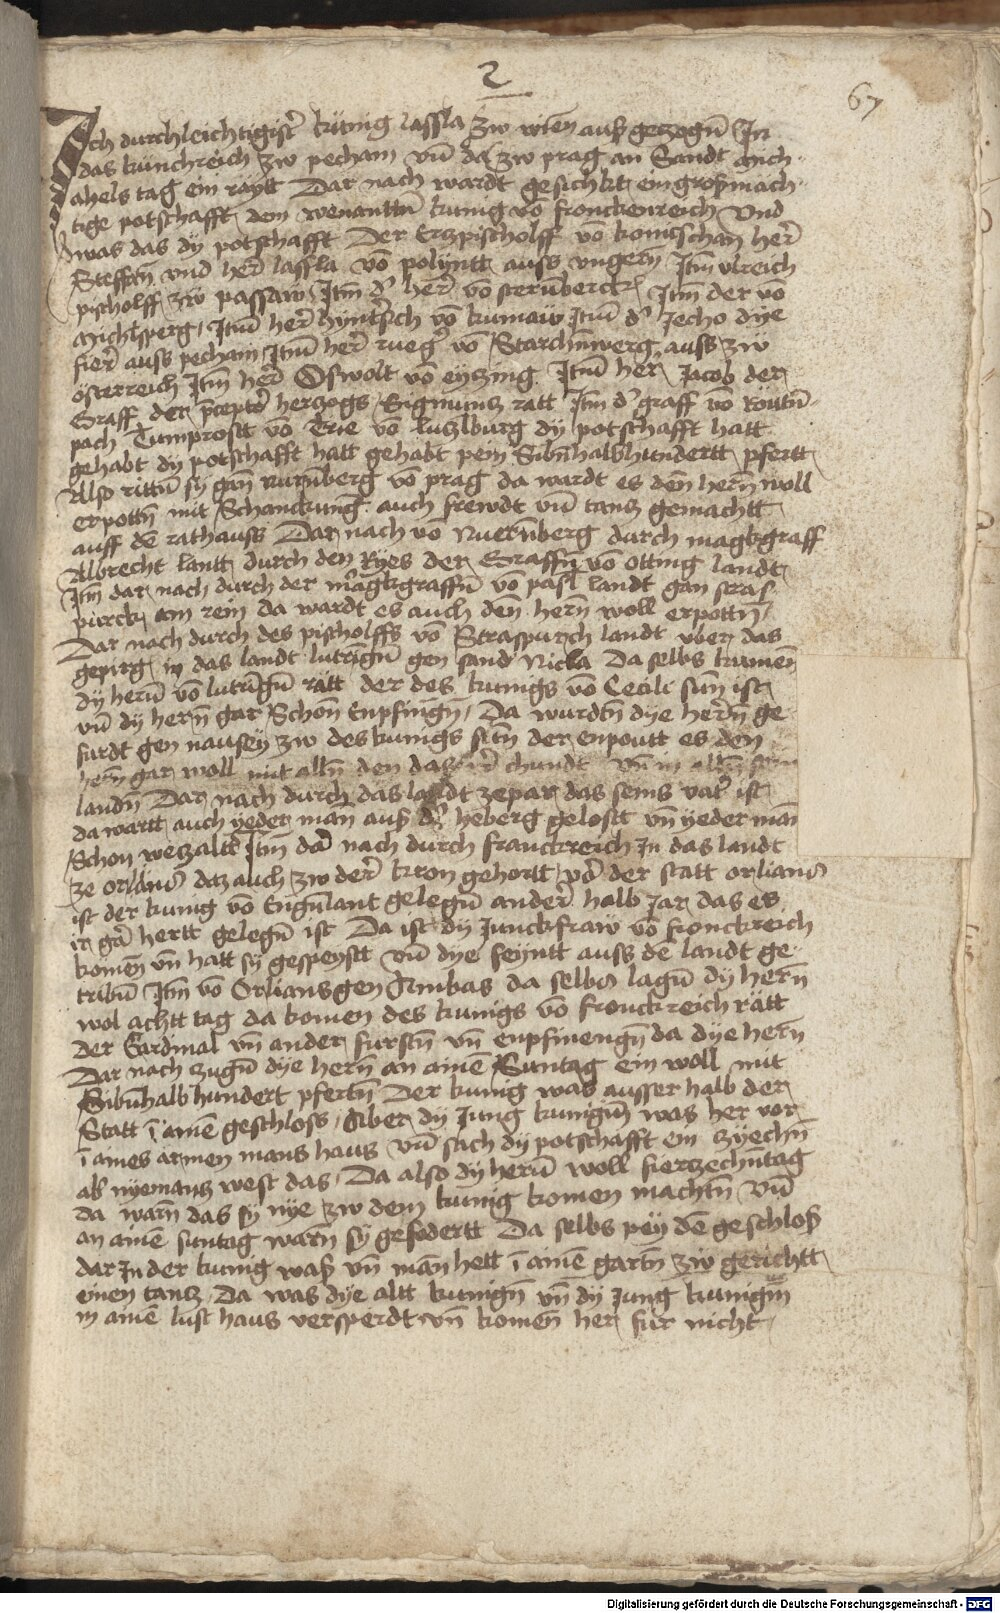 2
67
Ich durchleichtigister künig lassla zw wien auß getzogñ In
das künchreich zw pecham vñ da zw prag an Sandt mich
ahels tag ein raytt Dar nach wardt geschickt ein großmäch
tige potschafft dem wenanttñ kunig võ franckenreich Vnd
was das dy potschafft Der Erzpischolff võ konitschan her
Steffan vnd her lassla võ polyntt auss vngern Itm vlreich
pischolff zw passaw Itm d' her võ sternberck Itm der võ
michlsperg Itm her hyntsch võ kumaw Itm d' Jecho dye
fier auss pecham Itm her rueger võ Starchñwerg auss zw
österreich Itm her Oswolt võ eytzing Itm her Jacob der
Graff der herzogs Sigmuntz ratt Itm d' graff võ
pach Tumprostt võ Trie võ lutzlburg dy potschafft hatt
gehabt dy potschafft hatt gehabt pein Sibñhalbhundertt pfertt
Also rittñ sy gan nurnberg võ prag da wardt es den herñ woll
erpottñ mit Schanckung auch frewdt vñ tantz gemachtt
auff de rathauss Dar nach võ Nuernberg durch magkgraff
Albrecht lantt durch den Ryes der Graffñ võ Otting landt
Itm dar nach durch der magkgraffñ võ pasl landt gan stras
purck am rein da wardt es auch den herñ woll erpottñ
Dar nach durch des pischolffs võ Straspurch landt vber das
gepirg in das landt lutrigñ gen sand Nicla Da selbs kumen
dy herñ võ lutrigñ rätt der des kunigs võ Cecili sun ist
vñ dy herñ gar Schon Enpfingñ Da wurdñ dye herñ ge
furdt gen nausey zw des kunigs stñ der enpoutt es den
herñ gar woll mit allñ den das er chundt vñ in allñ sein
landñ Dar nach durch das landt zepar das seins vater ist
da wartt auch yeder man auß d' heberg gelostt vñ yeder man
Schon wetzaltt Itm dar nach durch franckreich In das landt
ze orlans daz auch zw der kron gehortt vor der statt orlians
ist der kunig võ Engñlant gelegñ ander halb Jar das es
ir gar hertt gelegñ ist Da ist dy Junckfraw võ franckreich
komen vñ hatt sy gespeystt vñ dye feyntt auss de landt ge
tribñ Itm võ Orlians gen Ambas da selbs lagñ dy herñ
wol achtt tag da komen des kunigs võ franckreich rätt
Der Cardinal vñ ander furstñ vñ enpfinengñ da dye herñ
Dar nach zugñ dye herñ an aine Suntag ein woll mit
Sibñhalb hundert pfertñ Der kunig was ausser halb der
Statt i aine geschloss Aber dy Jung kunigin was her vor
i aines armen mans haus vñ sach dy potschafft ein zyechñ
ab nyemantz west das Da also dy herñ woll fierzechñtag
da warñ das sy nye zw dem kunig komen machtñ vñ
an aine suntag warñ sy gefodertt Da selbs pey de geschloß
dar In der kunig waß vñ man hett i aine gartñ zw gerichtt
einen tantz Da was dye altt kunigñ vñ dy Jung kunigin
in aine lust haus versperdt vñ komen her fur nicht
Digitalisierung gefördert durch die Deutsche Forschungsgemeinschaft - DFG